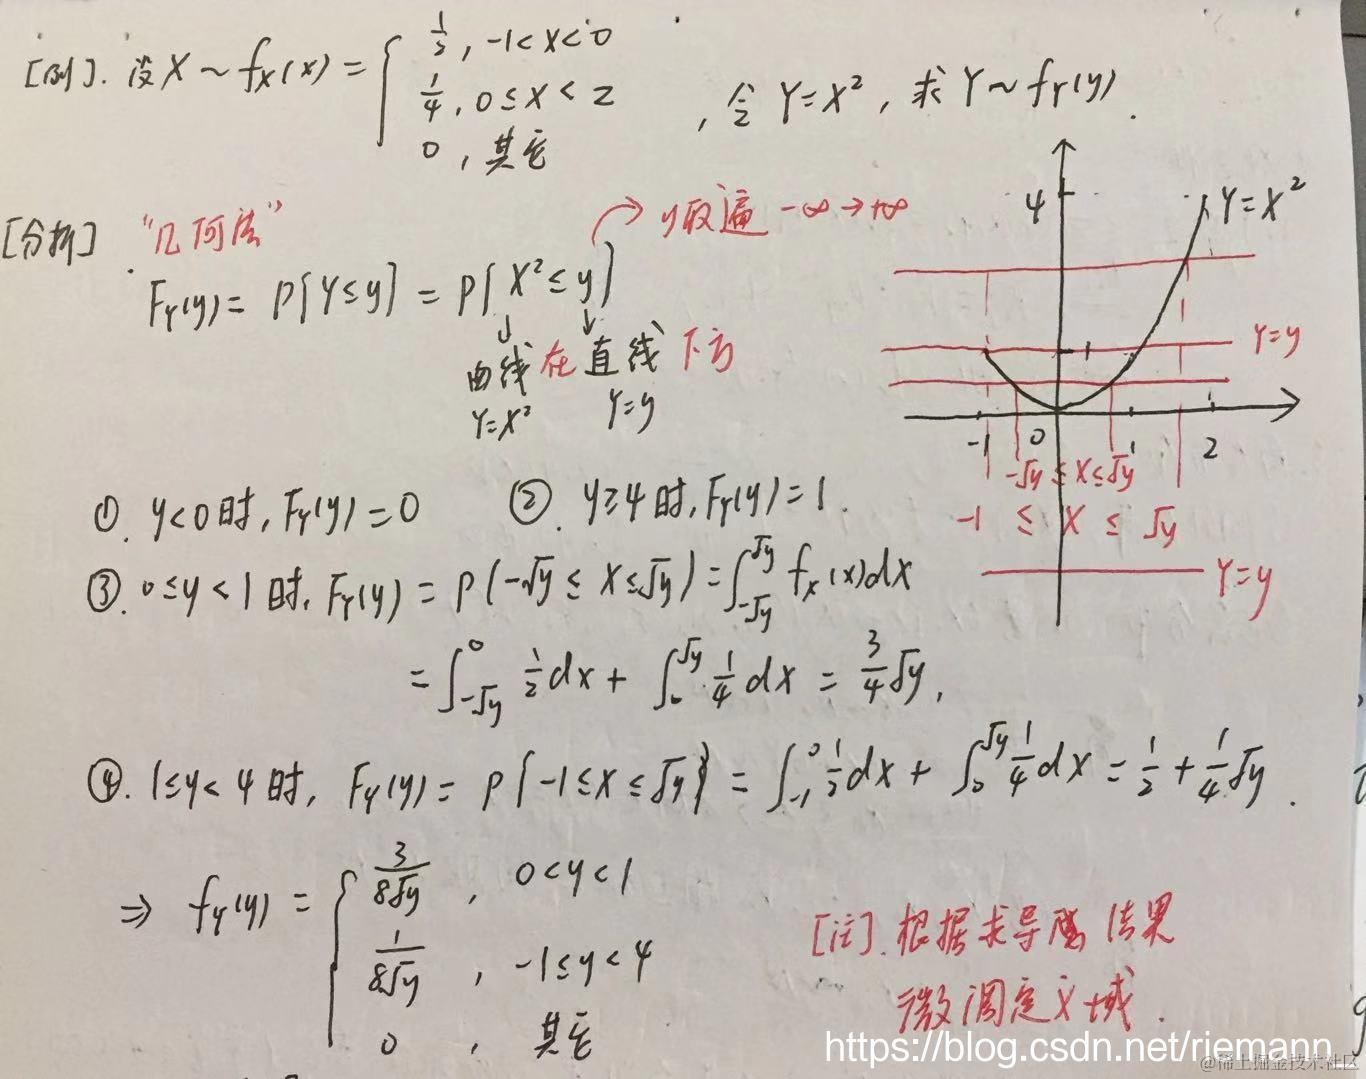 [例]. 设X～fX(x) = { 1/2, -1<x<0
1/4, 0≤x<2
0, 其它
, 令 Y=X², 求 Y～fY(y).
[分析] “几何法”
y取遍 -∞→+∞
FY(y) = P{Y≤y} = P{X²≤y}
曲线 在 直线 下方
Y=X² Y=y
4
Y=X²
1
Y=y
-1 0 1 2
-√y ≤ X ≤ √y
-1 ≤ X ≤ √y
Y=y
①. y<0时, FY(y)=0 ②. y≥4时, FY(y)=1.
③. 0≤y<1时, FY(y) = P(-√y ≤ X ≤ √y) = ∫_{-√y}^{√y} fX(x)dx
= ∫_{-√y}^{0} 1/2 dx + ∫_{0}^{√y} 1/4 dx = 3/4 √y,
④. 1≤y<4时, FY(y) = P{-1≤X≤√y} = ∫_{-1}^{0} 1/2 dx + ∫_{0}^{√y} 1/4 dx = 1/2 + 1/4 √y.
⇒ fY(y) = { 3/(8√y), 0<y<1
1/(8√y), -1≤y<4
0, 其它
[注]. 根据求导 结果
微调定义域.
https://blog.csdn.net/riemann_
@稀土掘金技术社区